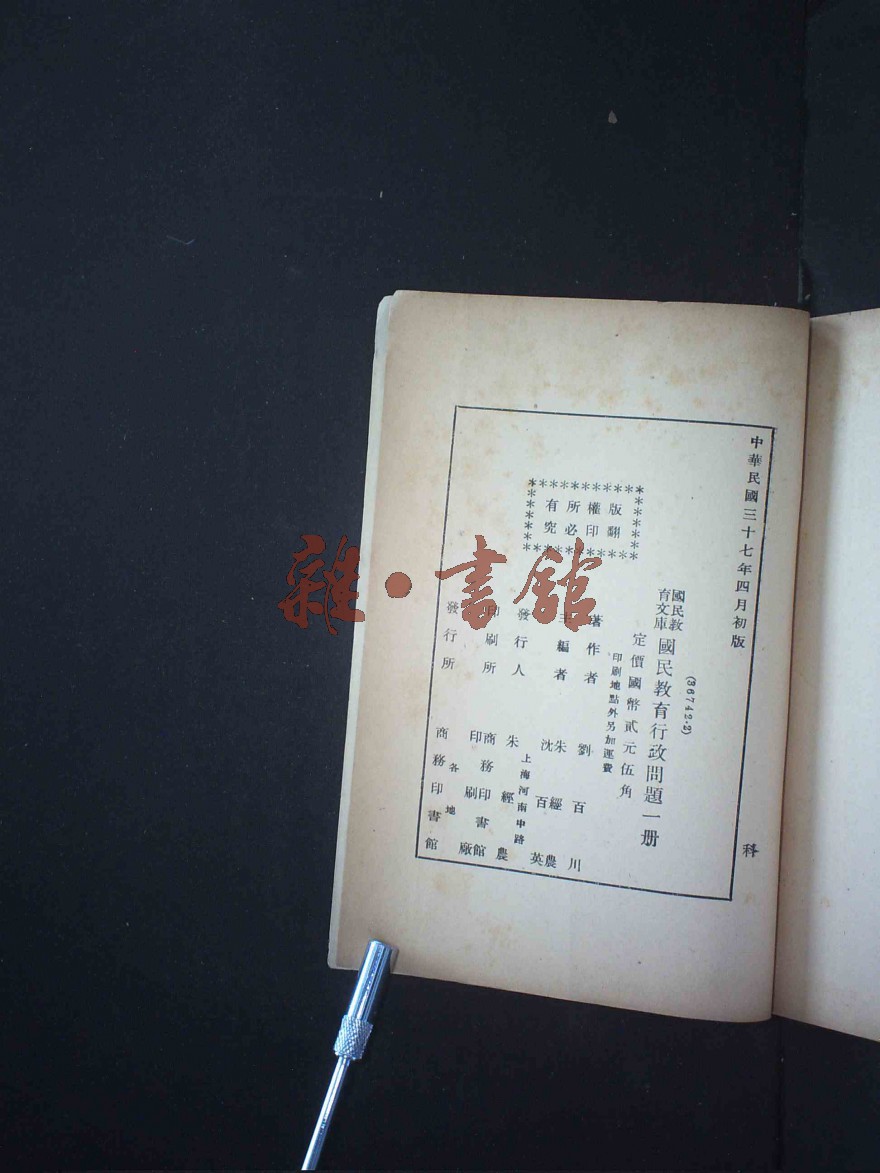 中華民國三十七年四月初版
(36742·2)
國民教育文庫 國民教育行政問題一册
定價國幣貳元伍角
印刷地點外另加運費
版權所有
翻印必究
著作者 劉百川
主編者 朱經農 沈百英
發行人 朱經農
上海河南中路
印刷所 商務印書館 印刷廠
發行所 商務印書館
各地
科
雜·書館